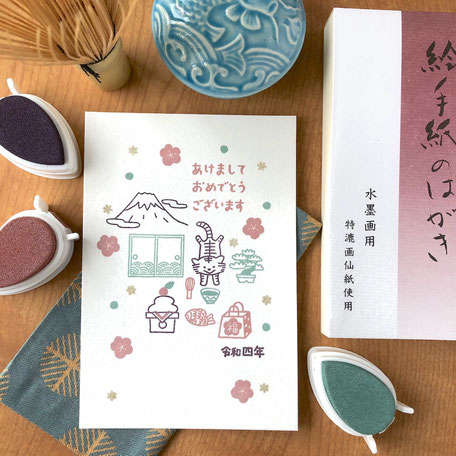 あけまして
おめでとう
ございます
福
令和四年
絵手紙のはがき
水墨画用
特漉画仙紙使用